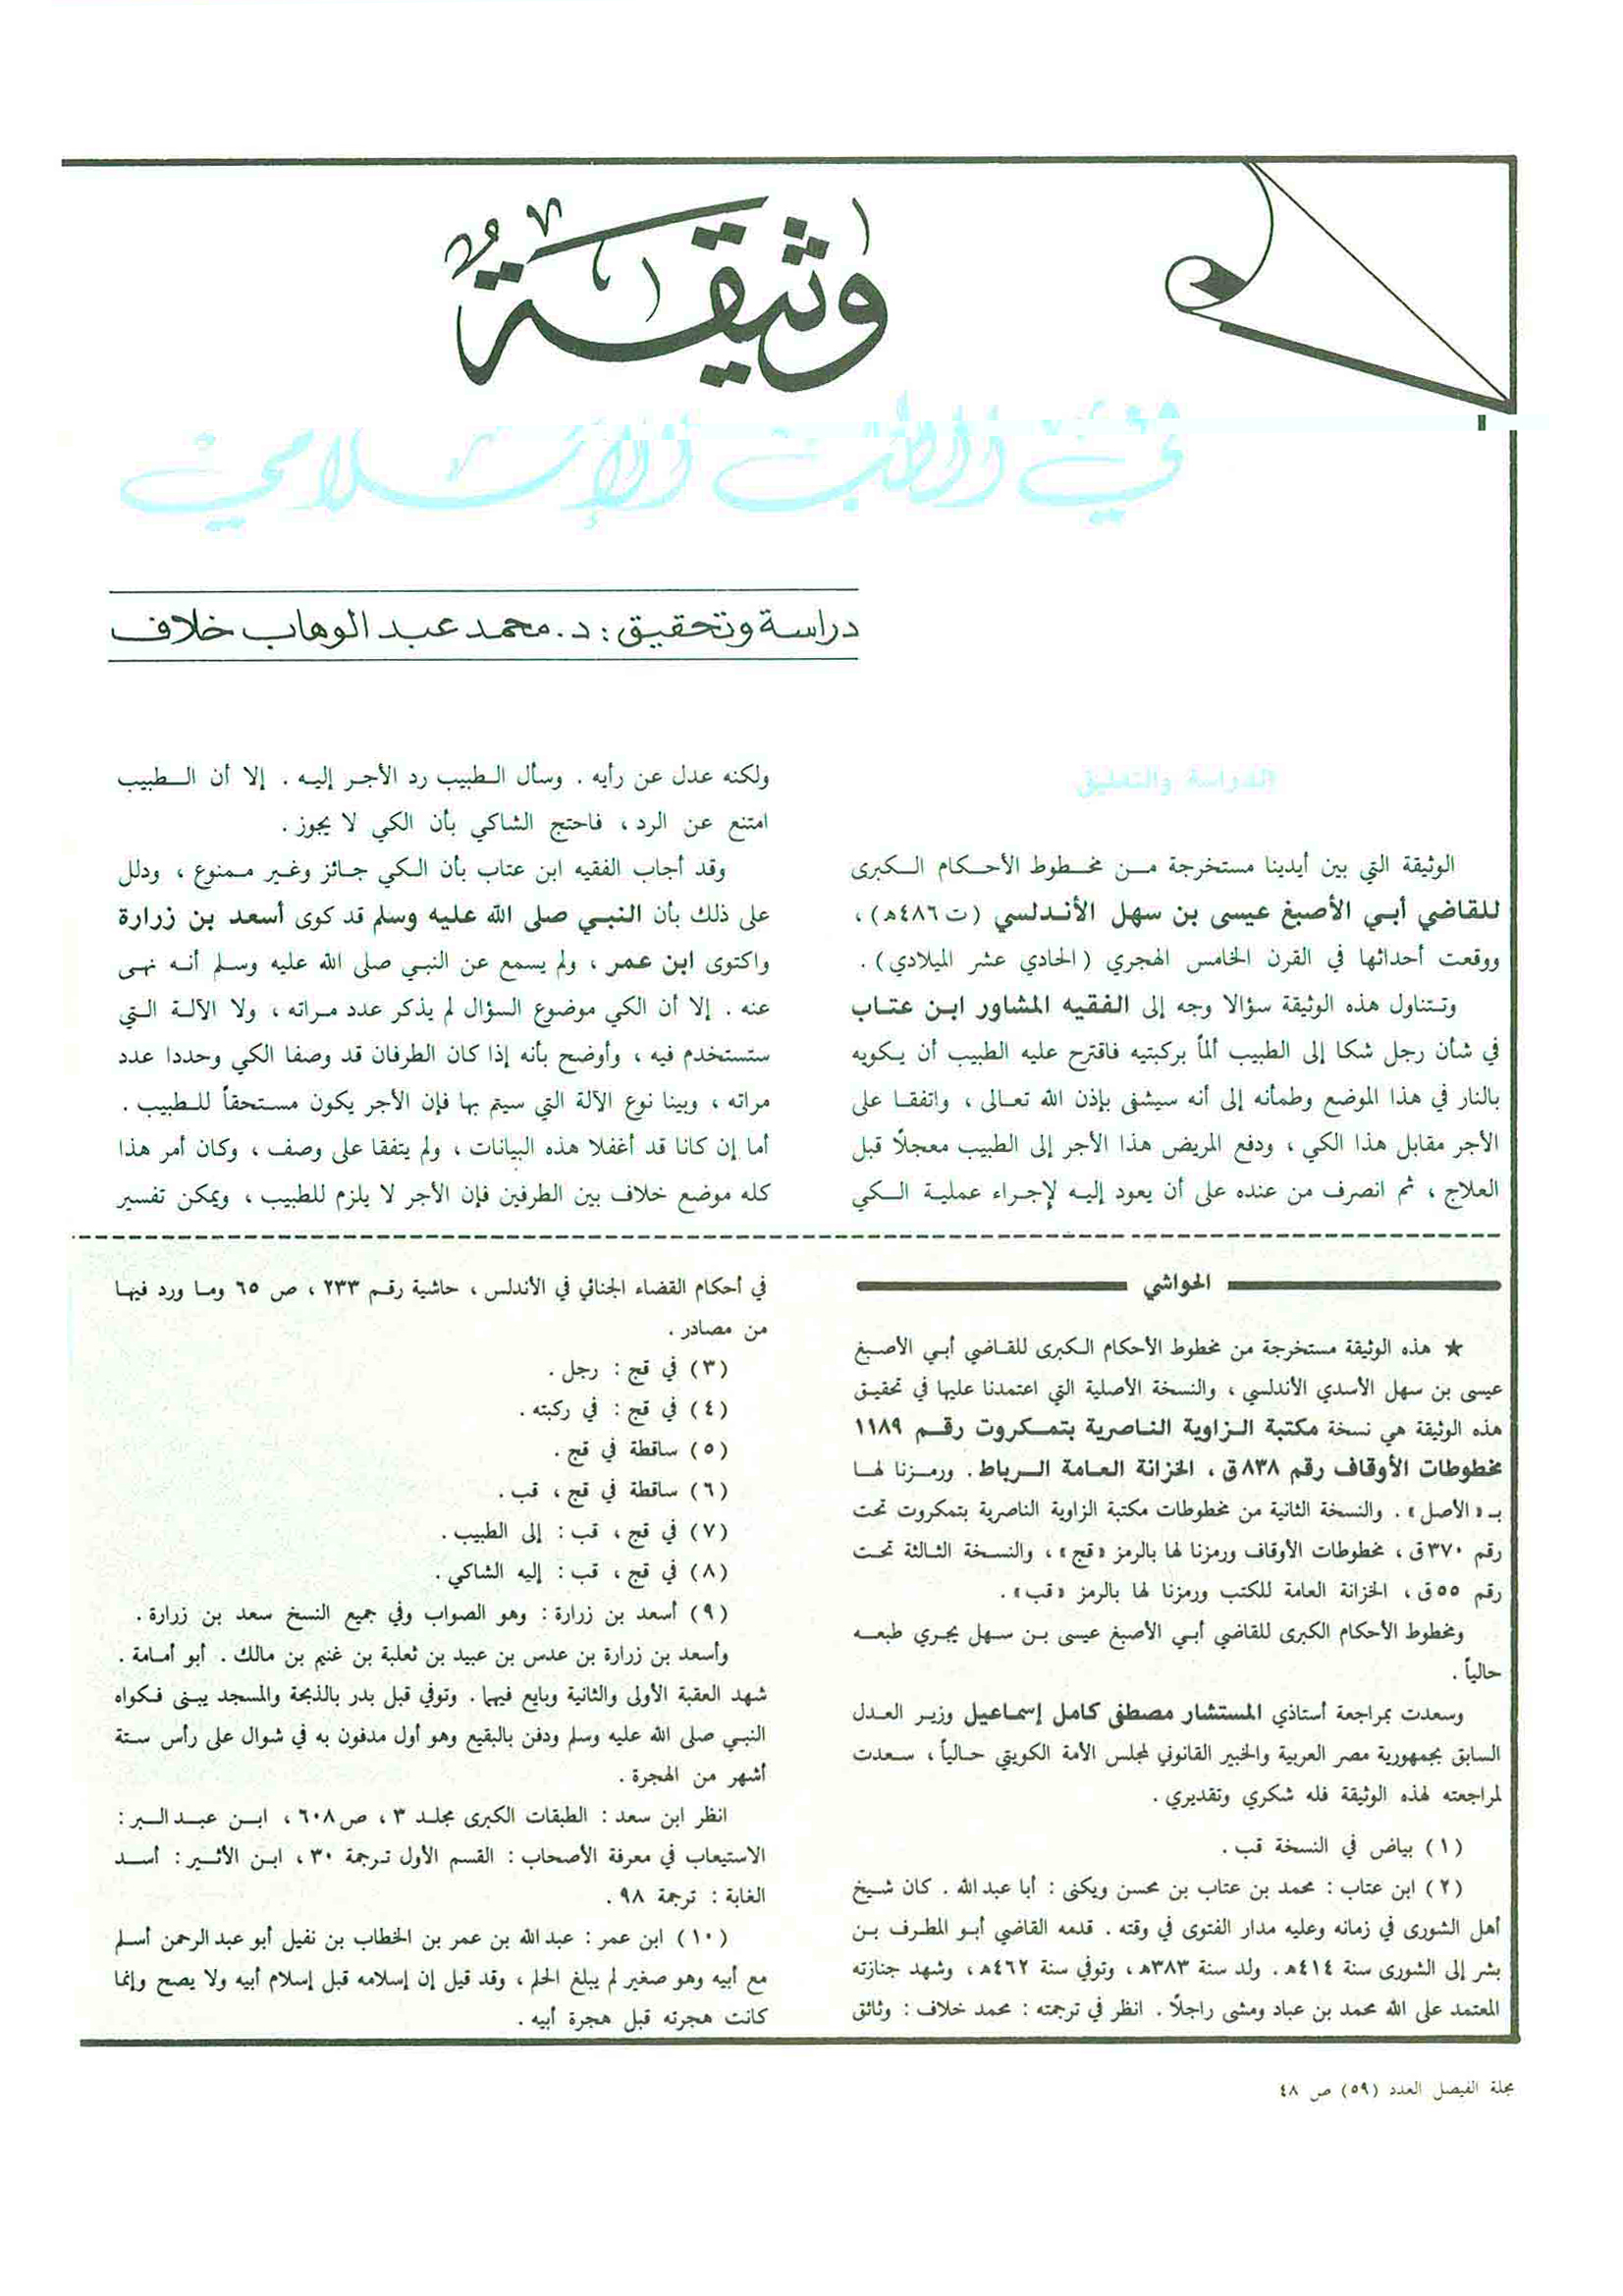 وثيقة
في الطب الإسلامي
دراسة وتحقيق : د. محمد عبد الوهاب خلاف
الدراسة والتعليق
الوثيقة التي بين أيدينا مستخرجة من مخطوط الأحكام الكبرى
للقاضي أبي الأصبغ عيسى بن سهل الأندلسي (ت ٤٨٦هـ) ،
ووقعت أحداثها في القرن الخامس الهجري (الحادي عشر الميلادي) .
وتتناول هذه الوثيقة سؤالا وجه إلى الفقيه المشاور ابن عتاب
في شأن رجل شكا إلى الطبيب ألماً بركبتيه فاقترح عليه الطبيب أن يكويه
بالنار في هذا الموضع وطمأنه إلى أنه سيشفى بإذن الله تعالى ، واتفقا على
الأجر مقابل هذا الكي ، ودفع المريض هذا الأجر إلى الطبيب معجلاً قبل
العلاج ، ثم انصرف من عنده على أن يعود إليه لإجراء عملية الكي
ولكنه عدل عن رأيه . وسأل الطبيب رد الأجر إليه . إلا أن الطبيب
امتنع عن الرد ، فاحتج الشاكي بأن الكي لا يجوز .
وقد أجاب الفقيه ابن عتاب بأن الكي جائز وغير ممنوع ، ودلل
على ذلك بأن النبي صلى الله عليه وسلم قد كوى أسعد بن زرارة
واكتوى ابن عمر ، ولم يسمع عن النبي صلى الله عليه وسلم أنه نهى
عنه . إلا أن الكي موضوع السؤال لم يذكر عدد مراته ، ولا الآلة التي
ستستخدم فيه ، وأوضح بأنه إذا كان الطرفان قد وصفا الكي وحددا عدد
مراته ، وبينا نوع الآلة التي سيتم بها فإن الأجر يكون مستحقاً للطبيب .
أما إن كانا قد أغفلا هذه البيانات ، ولم يتفقا على وصف ، وكان أمر هذا
كله موضع خلاف بين الطرفين فإن الأجر لا يلزم للطبيب ، ويمكن تفسير
الحواشي
★ هذه الوثيقة مستخرجة من مخطوط الأحكام الكبرى للقاضي أبي الأصبغ
عيسى بن سهل الأسدي الأندلسي ، والنسخة الأصلية التي اعتمدنا عليها في تحقيق
هذه الوثيقة هي نسخة مكتبة الزاوية الناصرية بتمكروت رقم ١١٨٩
مخطوطات الأوقاف رقم ٨٣٨ق ، الخزانة العامة الرباط . ورمزنا لها
بـ «الأصل» . والنسخة الثانية من مخطوطات مكتبة الزاوية الناصرية بتمكروت تحت
رقم ٣٧٠ق ، مخطوطات الأوقاف ورمزنا لها بالرمز «قج» ، والنسخة الثالثة تحت
رقم ٥٥ق ، الخزانة العامة للكتب ورمزنا لها بالرمز «قب» .
ومخطوط الأحكام الكبرى للقاضي أبي الأصبغ عيسى بن سهل يجري طبعه
حالياً .
وسعدت بمراجعة أستاذي المستشار مصطفى كامل إسماعيل وزير العدل
السابق بجمهورية مصر العربية والخبير القانوني لمجلس الأمة الكويتي حالياً ، سعدت
لمراجعته لهذه الوثيقة فله شكري وتقديري .
(١) بياض في النسخة قب .
(٢) ابن عتاب : محمد بن عتاب بن محسن ويكنى : أبا عبدالله . كان شيخ
أهل الشورى في زمانه وعليه مدار الفتوى في وقته . قدمه القاضي أبو المطرف بن
بشر إلى الشورى سنة ٤١٤هـ . ولد سنة ٣٨٣هـ ، وتوفي سنة ٤٦٢هـ ، وشهد جنازته
المعتمد على الله محمد بن عباد ومشى راجلاً . انظر في ترجمته : محمد خلاف : وثائق
في أحكام القضاء الجنائي في الأندلس ، حاشية رقم ٢٣٣ ، ص ٦٥ وما ورد فيها
من مصادر .
(٣) في قج : رجل .
(٤) في قج : في ركبته .
(٥) ساقطة في قج .
(٦) ساقطة في قج ، قب .
(٧) في قج ، قب : إلى الطبيب .
(٨) في قج ، قب : إليه الشاكي .
(٩) أسعد بن زرارة : وهو الصواب وفي جميع النسخ سعد بن زرارة .
وأسعد بن زرارة بن عدس بن عبيد بن ثعلبة بن غنيم بن مالك . أبو أمامة .
شهد العقبة الأولى والثانية وبايع فيهما . وتوفي قبل بدر بالذبحة والمسجد يبنى فكواه
النبي صلى الله عليه وسلم ودفن بالبقيع وهو أول مدفون به في شوال على رأس ستة
أشهر من الهجرة .
انظر ابن سعد : الطبقات الكبرى مجلد ٣ ، ص ٦٠٨ ، ابن عبد البر :
الاستيعاب في معرفة الأصحاب : القسم الأول ترجمة ٣٠ ، ابن الأثير : أسد
الغابة : ترجمة ٩٨ .
(١٠) ابن عمر : عبدالله بن عمر بن الخطاب بن نفيل أبو عبدالرحمن أسلم
مع أبيه وهو صغير لم يبلغ الحلم ، وقد قيل إن إسلامه قبل إسلام أبيه ولا يصح وإنما
كانت هجرته قبل هجرة أبيه .
مجلة الفيصل العدد (٥٩) ص ٤٨